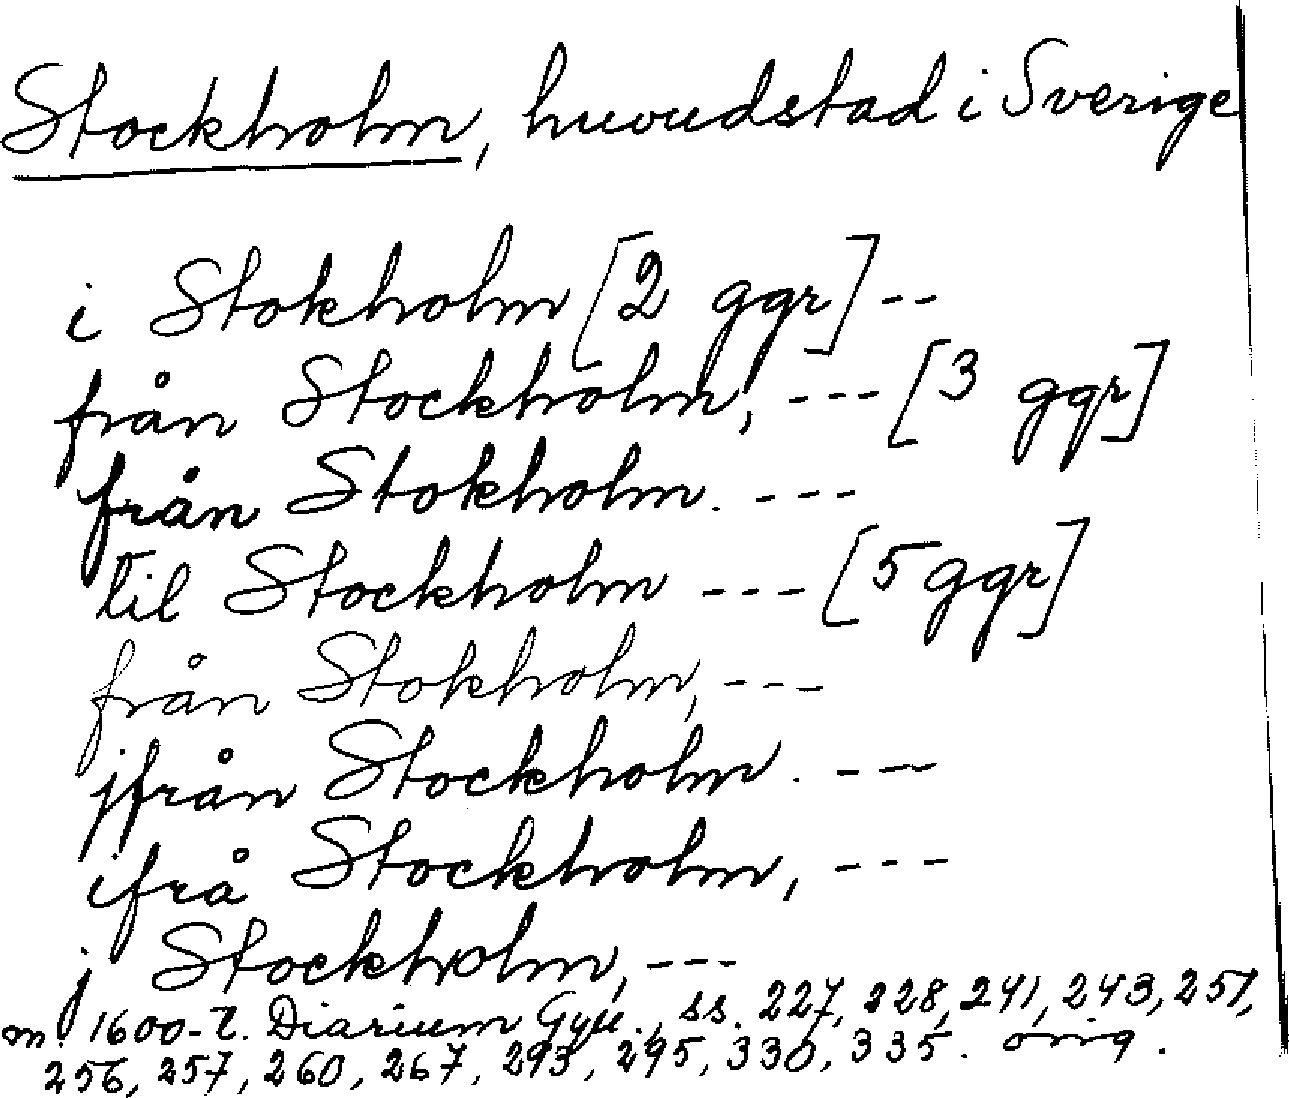 Stockholm, huvudstad i Sverige
i Stokholm [2 ggr] --
från Stockholm, --- [3 ggr]
från Stokholm. ---
til Stockholm --- [5 ggr]
från Stokholm, ---
jfrån Stockholm. ---
ifrå Stockholm, ---
j Stockholm, ---
m. 1600-t. Diarium Gyll., ss. 227, 228, 241, 243, 251,
256, 257, 260, 267, 293, 295, 330, 335. orig.